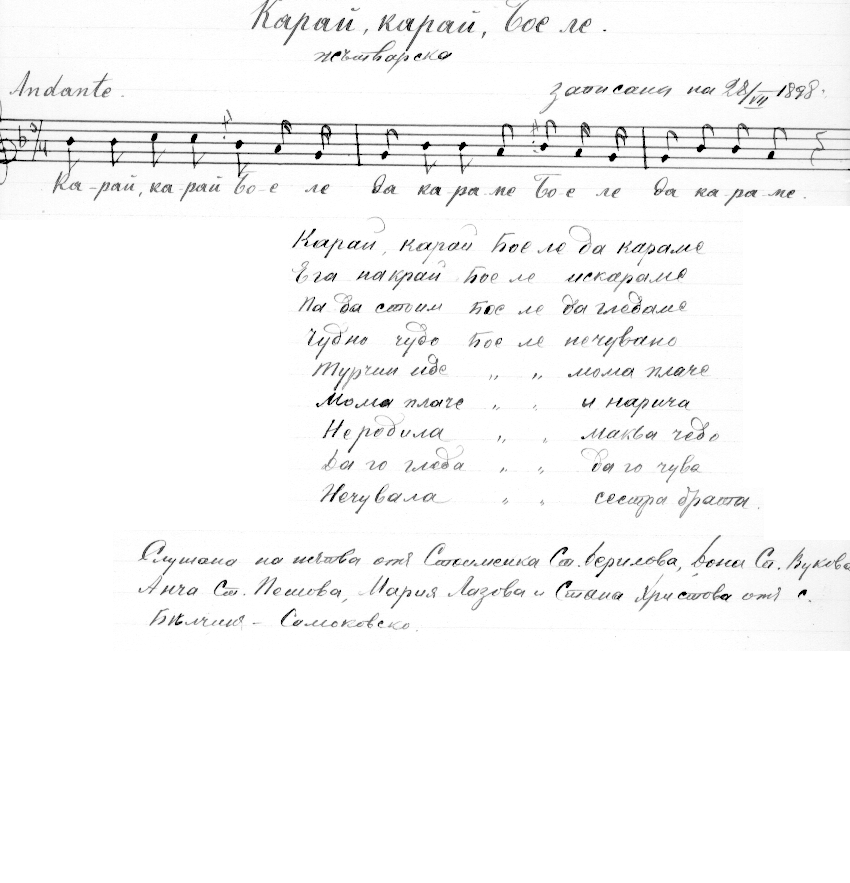 Карай, карай, Бое ле.
жътварска
Andante.
записана на 28/VII 1898.
3/4
Ка-рай, ка-рай Бо-е ле да ка-ра-ме Бо-е ле да ка-ра-ме.
Карай, карай Бое ле да караме
Ега накрай Бое ле искараме
Па да стоим Бое ле да гледаме
Чудно чудо Бое ле нечувано
Турчин иде „ „ мома плаче
Мома плаче „ „ и нарича
Неродила „ „ маква чедо
Да го гледа „ „ да го чува
Нечувала „ „ сестра брата.
Слушана на жътва отъ Стоименка Ст. Верилова, Дона Ст. Вукова
Анча Ст. Пешова, Мария Лазова и Стана Христова отъ с.
Бѣлчинъ - Самоковско.